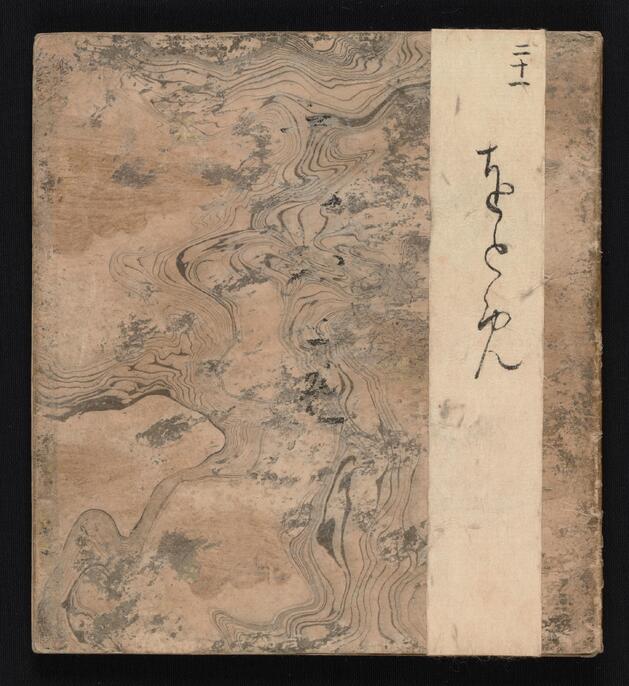 二十一
をとめ